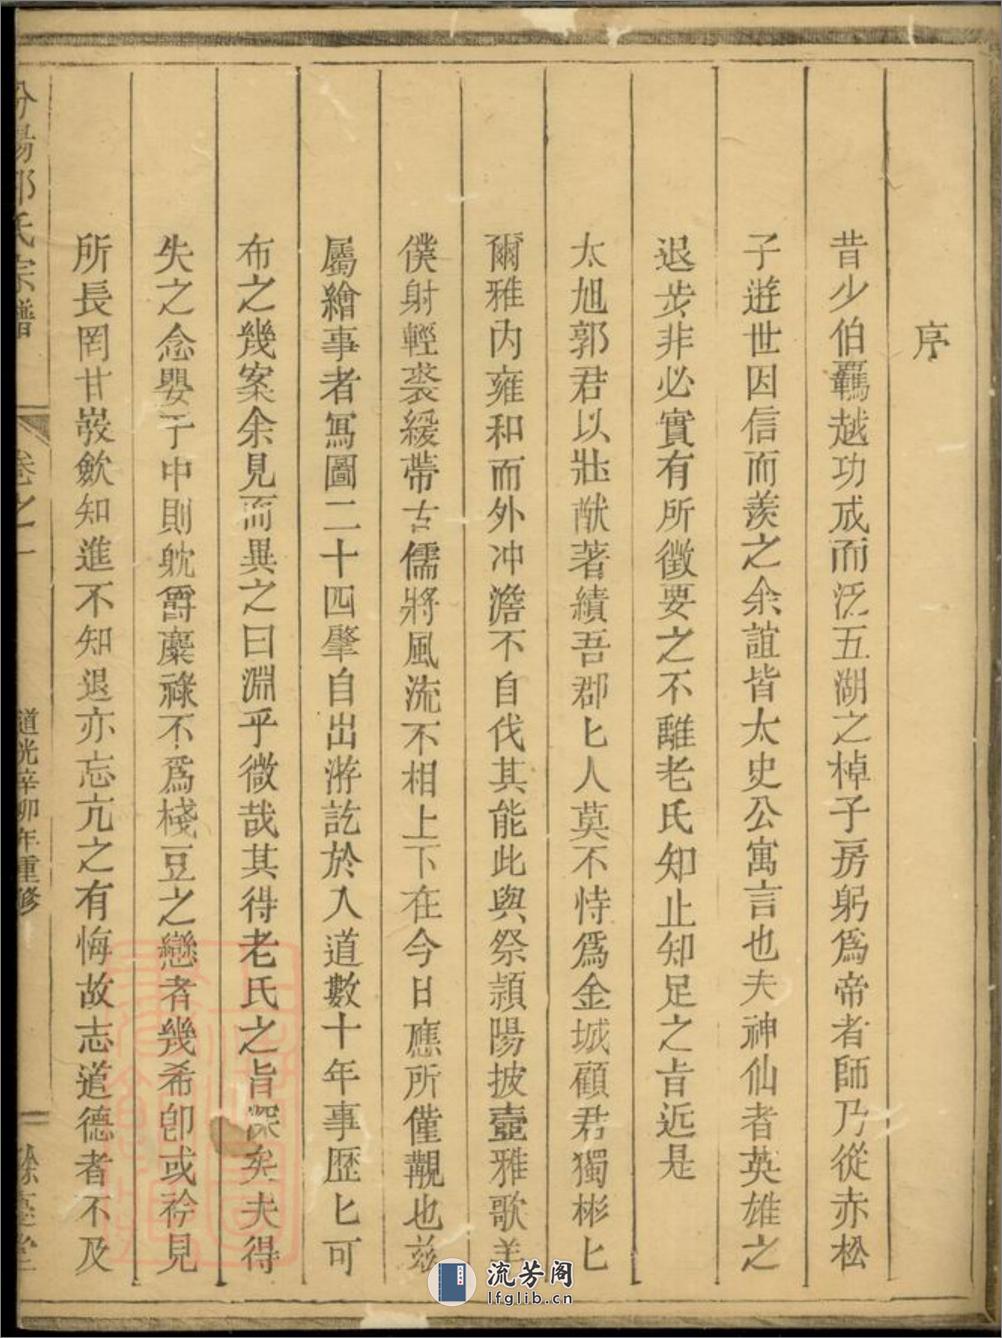 序
昔少伯羈越功成而泛五湖之棹子房躬爲帝者師乃從赤松
子遊世因信而羨之余誼皆太史公寓言也夫神仙者英雄之
退步非必實有所徵要之不離老氏知止知足之旨近是
太旭郭君以壯猷著績吾郡匕人莫不恃爲金城顧君獨彬匕
爾雅内雍和而外冲澹不自伐其能此與祭頴陽披壺雅歌羊
僕射輕裘緩帶古儒將風流不相上下在今日應所僅覯也兹
屬繪事者寫圖二十四肇自出游訖於入道數十年事歴匕可
布之幾案余見而異之曰淵乎微哉其得老氏之旨深矣夫得
失之念嬰于中則躭爵麋祿不爲棧豆之戀者幾希卽或矜見
所長罔甘歛知進不知退亦忘亢之有悔故志道德者不及
汾陽郭氏宗譜
卷之一
道光辛卯年重修
流芳阁
lfglib.cn